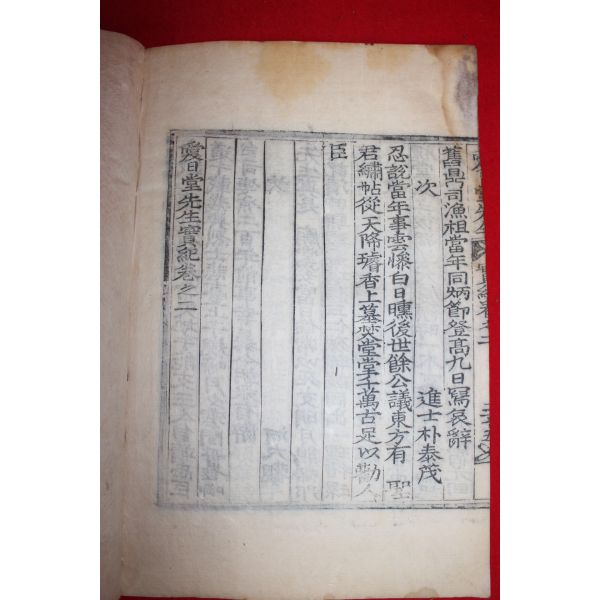 舊鼎司漁祖當年同炳節登高九日寫哀辭
次
進士朴泰茂
忍說當年事雲慘白日曛後世餘公議東方有 聖
君繡帖從天降瓊香上墓焚堂堂千萬古足以勸人
臣
愛日堂先生實紀卷之二